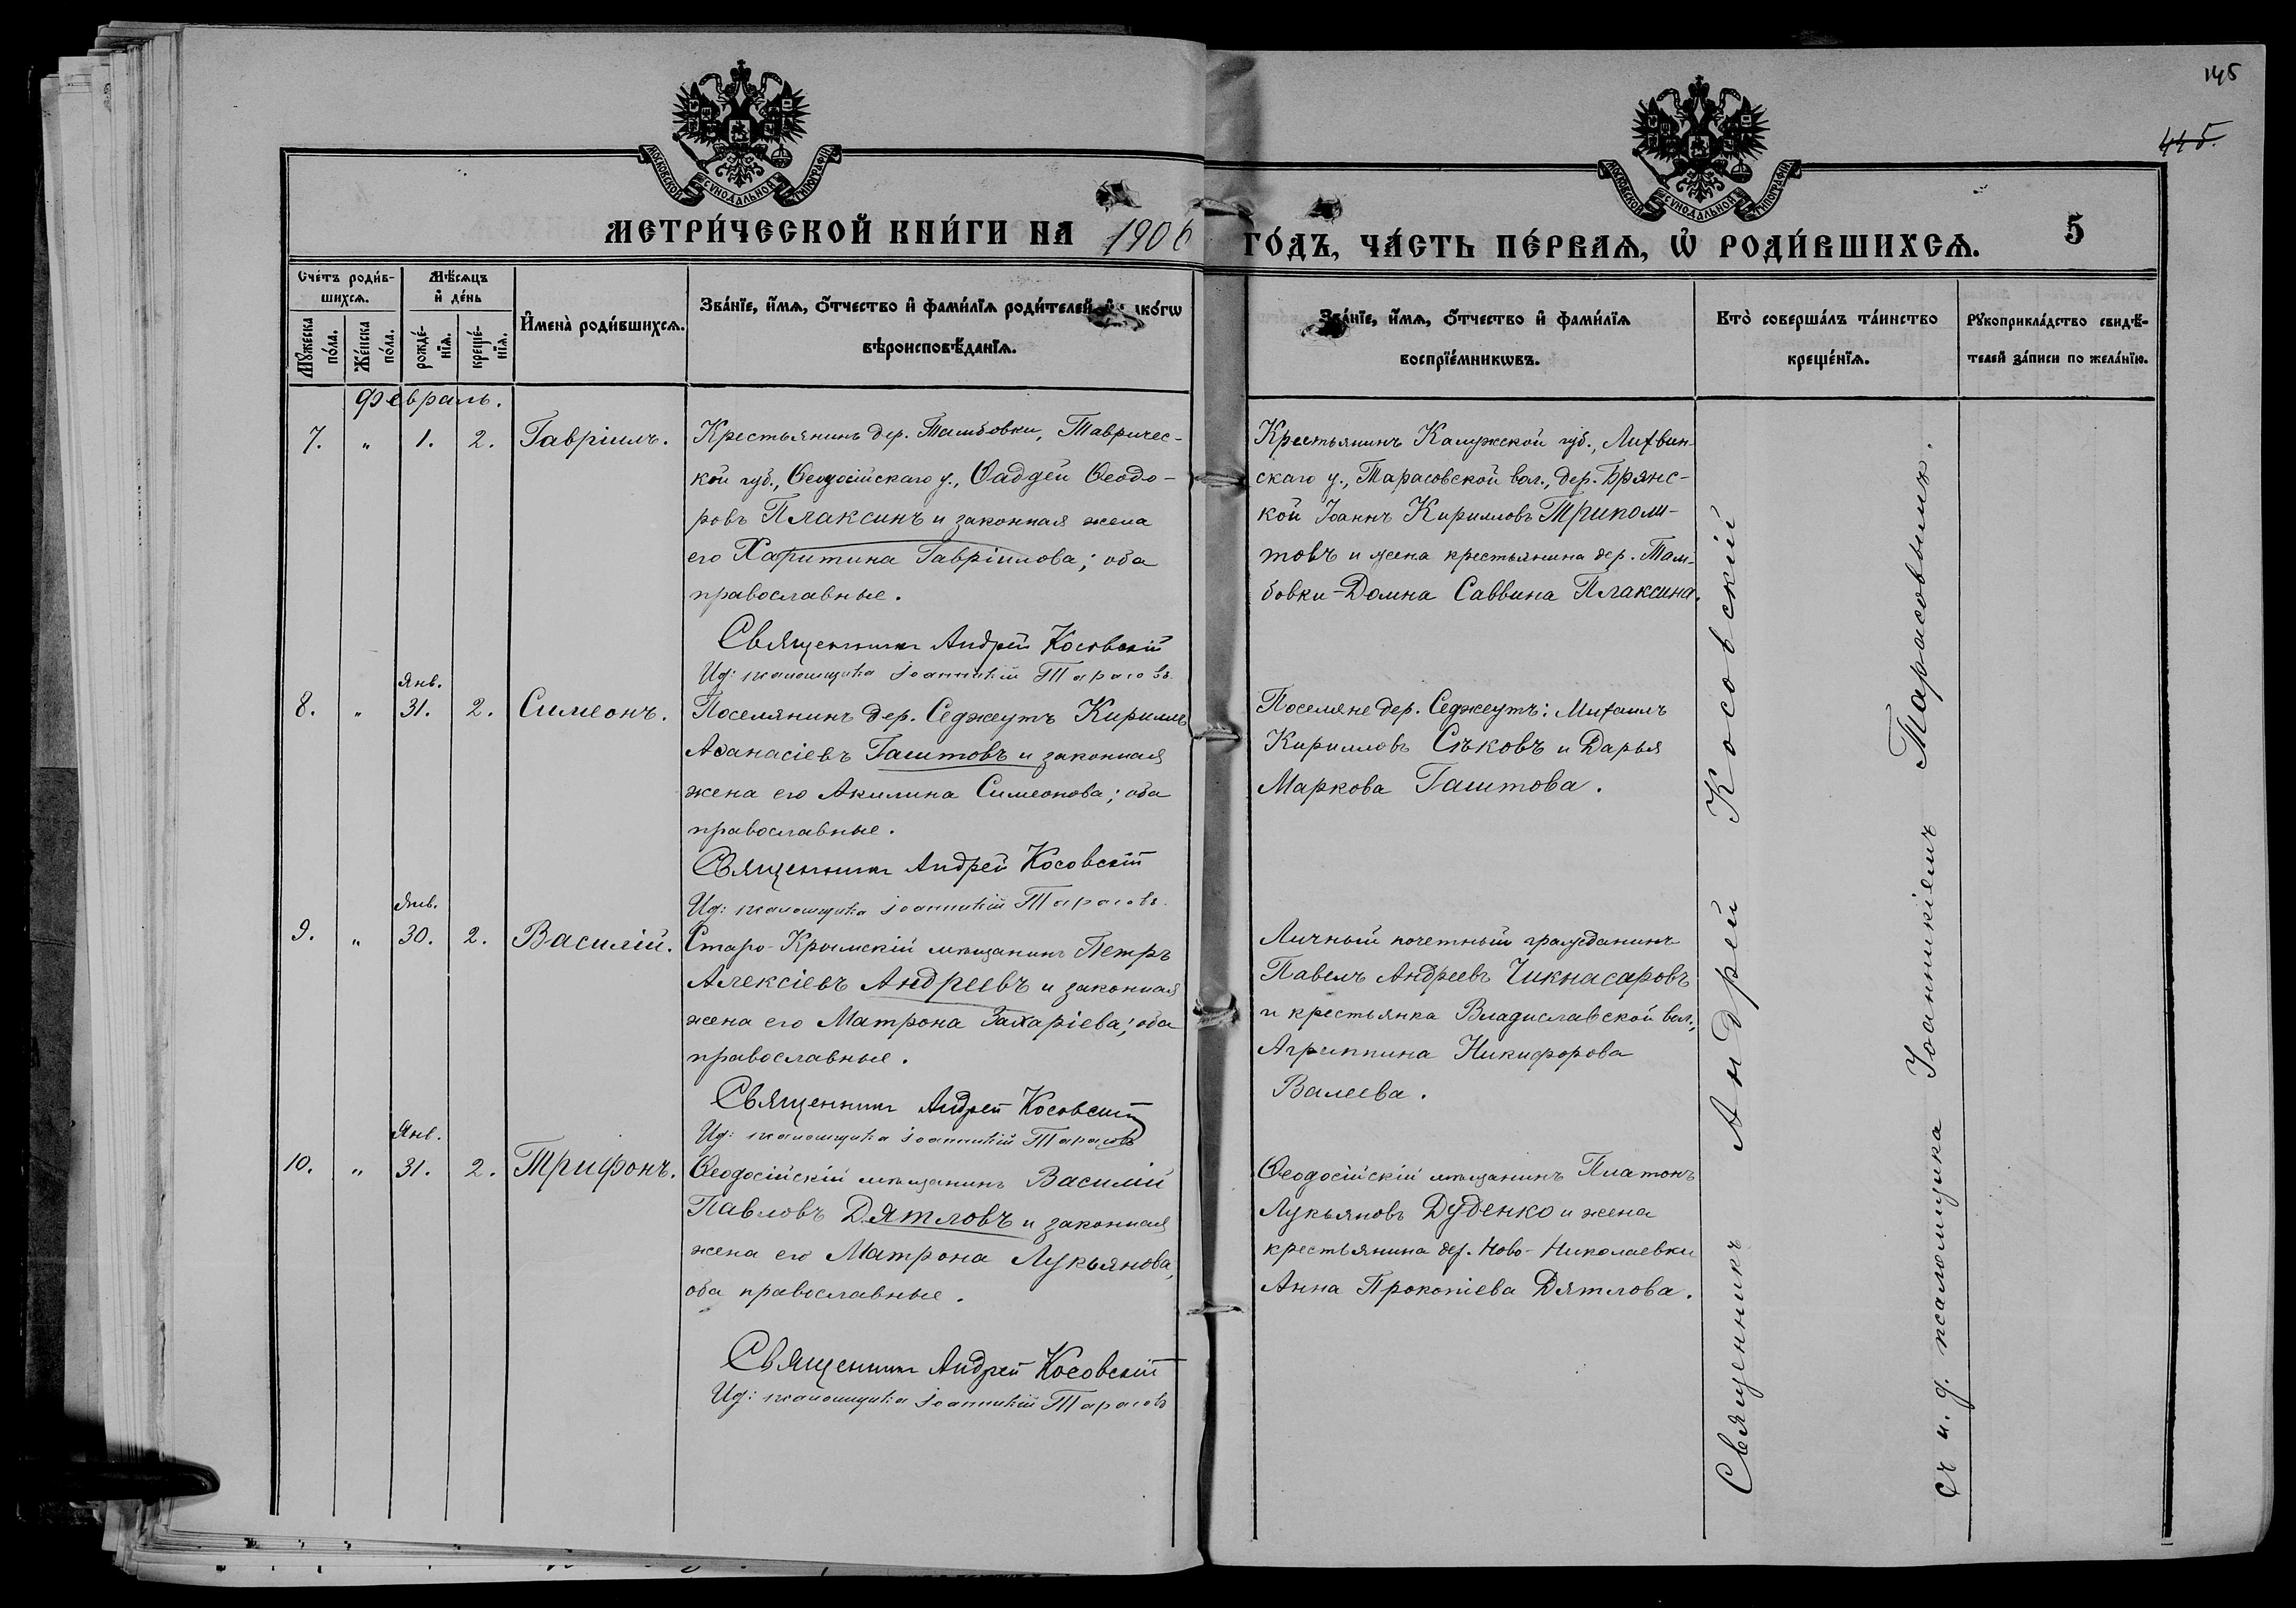 145
445.
МОСКОВСКОЙ СѴНОДАЛЬНОЙ ТИПОГРАФІИ
МОСКОВСКОЙ СѴНОДАЛЬНОЙ ТИПОГРАФІИ
МЕТРИ́ЧЕСКОЙ КНИ́ГИ НА 1906
ГО́ДЪ, ЧА́СТЬ ПЕ́РВАѦ, Ѡ҆ РОДИ́ВШИХСѦ.
5
Сче́тъ роди́в-
шихсѧ.
Мꙋ́жеска
по́ла.
Же́нска
по́ла.
Мѣ́сѧцъ
и҆ де́нь
рожде́-
нїѧ.
креще́-
нїѧ.
И҆мена̀ роди́вшихсѧ.
Зва́нїе, и҆́мѧ, ѻ҆́тчество и҆ фами́лїѧ роди́телей, и҆ ко́гѡ
вѣроисповѣ́данїѧ.
Зва́нїе, и҆́мѧ, ѻ҆́тчество и҆ фами́лїѧ
воспрїе́мникѡвъ.
Кто̀ соверша́лъ та́инство
креще́нїѧ.
Рꙋкоприкла́дство свидѣ́-
телей за́писи по жела́нїю.
Февраль.
7. " 1. 2. Гавріилъ.
Крестьянинъ дер. Тамбовки, Тавричес-
кой губ., Ѳеодосійскаго у., Ѳаддей Ѳеодо-
ровъ Плаксинъ и законная жена
его Харитина Гавріилова; оба
православные.
Священникъ Андрей Косовскій
И д: псаломщика Іоанникій Тарасовъ
Крестьянинъ Калужской губ., Лихвин-
скаго у., Тарасовской вол., дер. Брянс-
кой Іоаннъ Кирилловъ Триполи-
товъ и жена крестьянина дер. Там-
бовки - Домна Саввина Плаксина.
Янв.
8. " 31. 2. Симеонъ.
Поселянинъ дер. Седжеутъ Кириллъ
Аѳанасіевъ Гаштовъ и законная
жена его Акилина Симеонова; оба
православные.
Священникъ Андрей Косовскій
И д: псаломщика Іоанникій Тарасовъ
Поселяне дер. Седжеутъ: Михаилъ
Кирилловъ Сѣковъ и Дарья
Маркова Гаштова.
Янв.
9. " 30. 2. Василій.
Старо-Крымскій мѣщанинъ Петръ
Алексіевъ Андреевъ и законная
жена его Матрона Захаріева; оба
православные.
Священникъ Андрей Косовскій
И д: псаломщика Іоанникій Тарасовъ
Личный почетный гражданинъ
Павелъ Андреевъ Чикнасаровъ
и крестьянка Владиславской вол.,
Агриппина Никифорова
Валеева.
Янв.
10. " 31. 2. Трифонъ.
Ѳеодосійскій мѣщанинъ Василій
Павловъ Дятловъ и законная
жена его Матрона Лукьянова,
оба православные.
Священникъ Андрей Косовскій
И д: псаломщика Іоанникій Тарасовъ
Ѳеодосійскій мѣщанинъ Платонъ
Лукьяновъ Дуденко и жена
крестьянина дер. Ново-Николаевки
Анна Прокопіева Дятлова.
Священникъ Андрей Косовскій
съ и. д. псаломщика Іоанникіемъ Тарасовымъ.